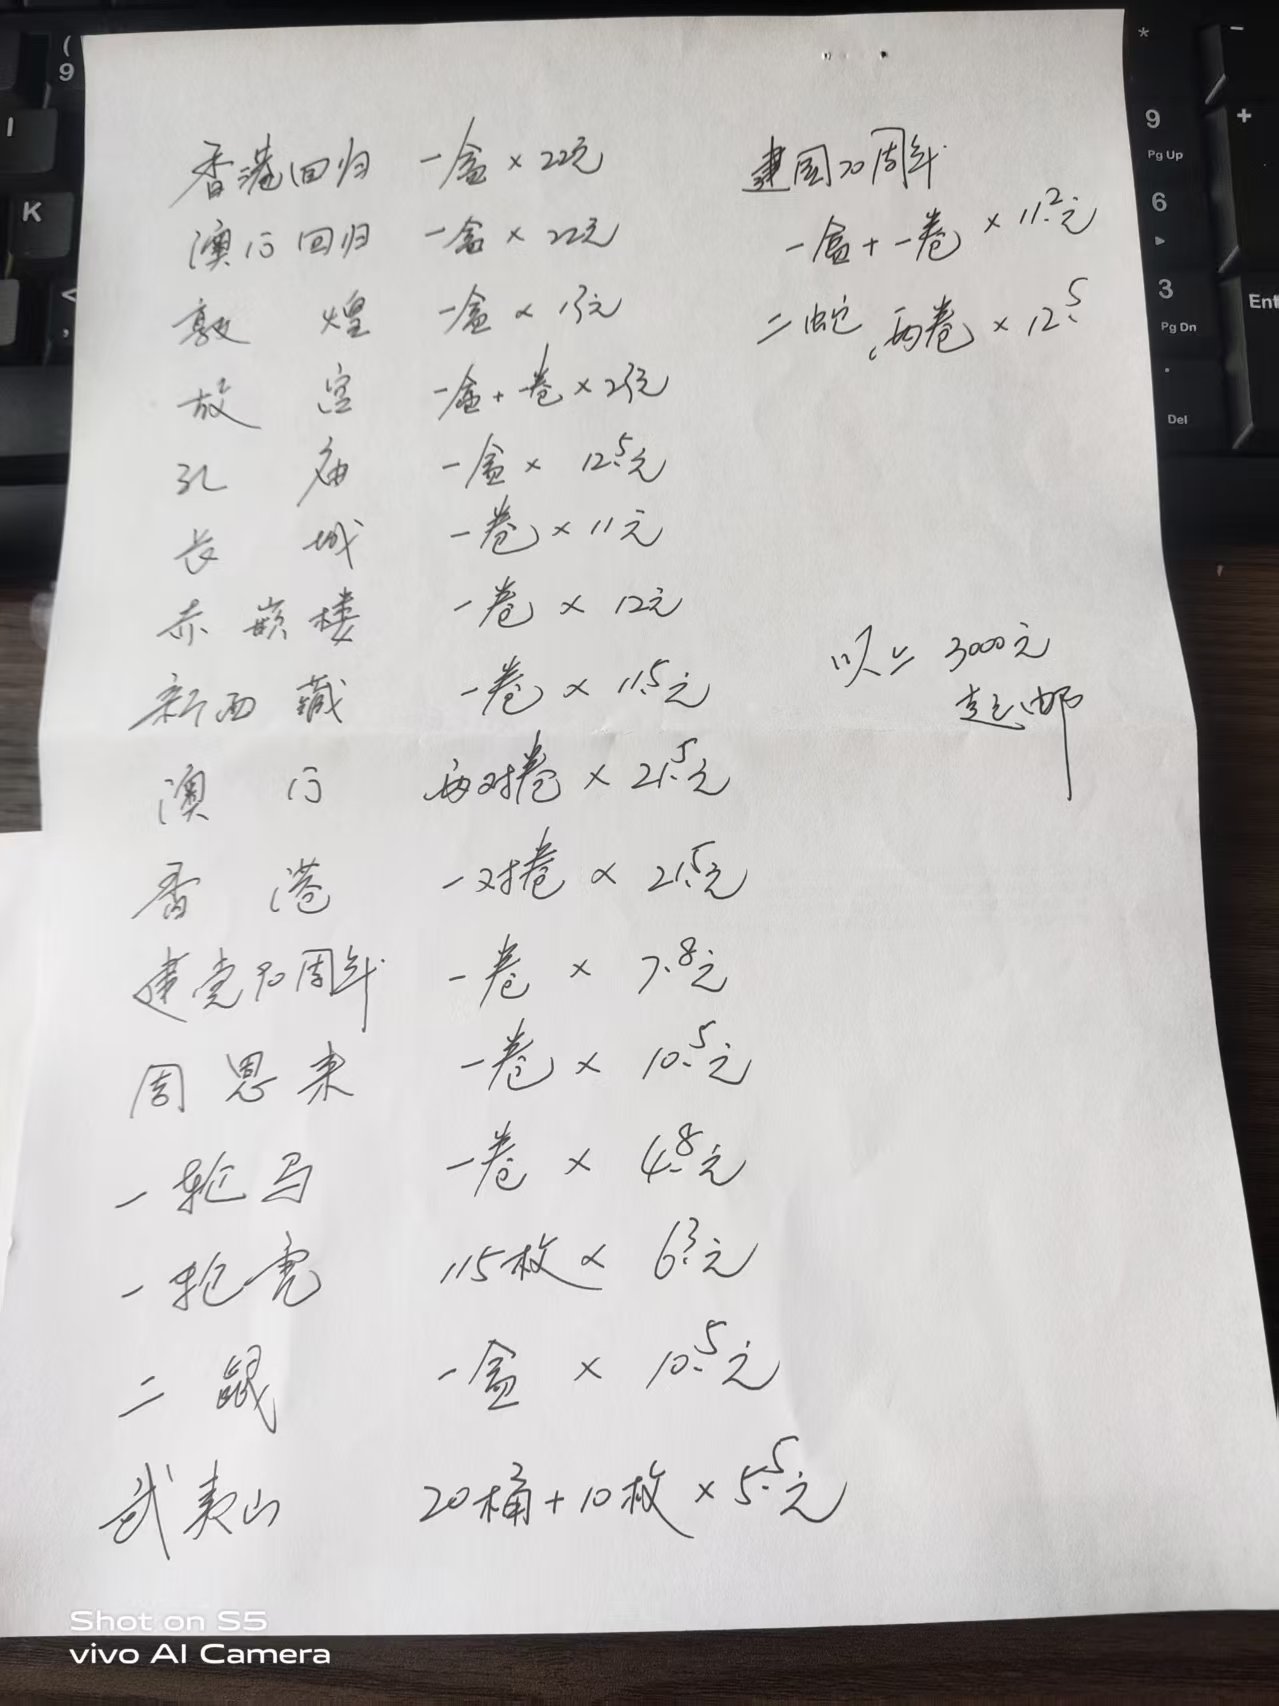 香港回归 一盒×22元
澳门回归 一盒×22元
敦煌 一盒×13元
故宫 一盒+一卷×23元
孔庙 一盒×12.5元
长城 一卷×11元
赤嵌楼 一卷×12元
新西藏 一卷×11.5元
澳门 两对卷×21.5元
香港 一对卷×21.5元
建党90周年 一卷×7.8元
周恩来 一卷×10.5元
一轮马 一卷×4.8元
一轮虎 115枚×6.3元
二鼠 一盒×10.5元
武夷山 20桶+10枚×5.5元
建国70周年
一盒+一卷×11.2元
二蛇 两卷×12.5
以上3000元
起邮
Shot on S5
vivo AI Camera
(
9
I
K
<
,
*
-
9
Pg Up
+
6
3
Pg Dn
Ent
.
Del